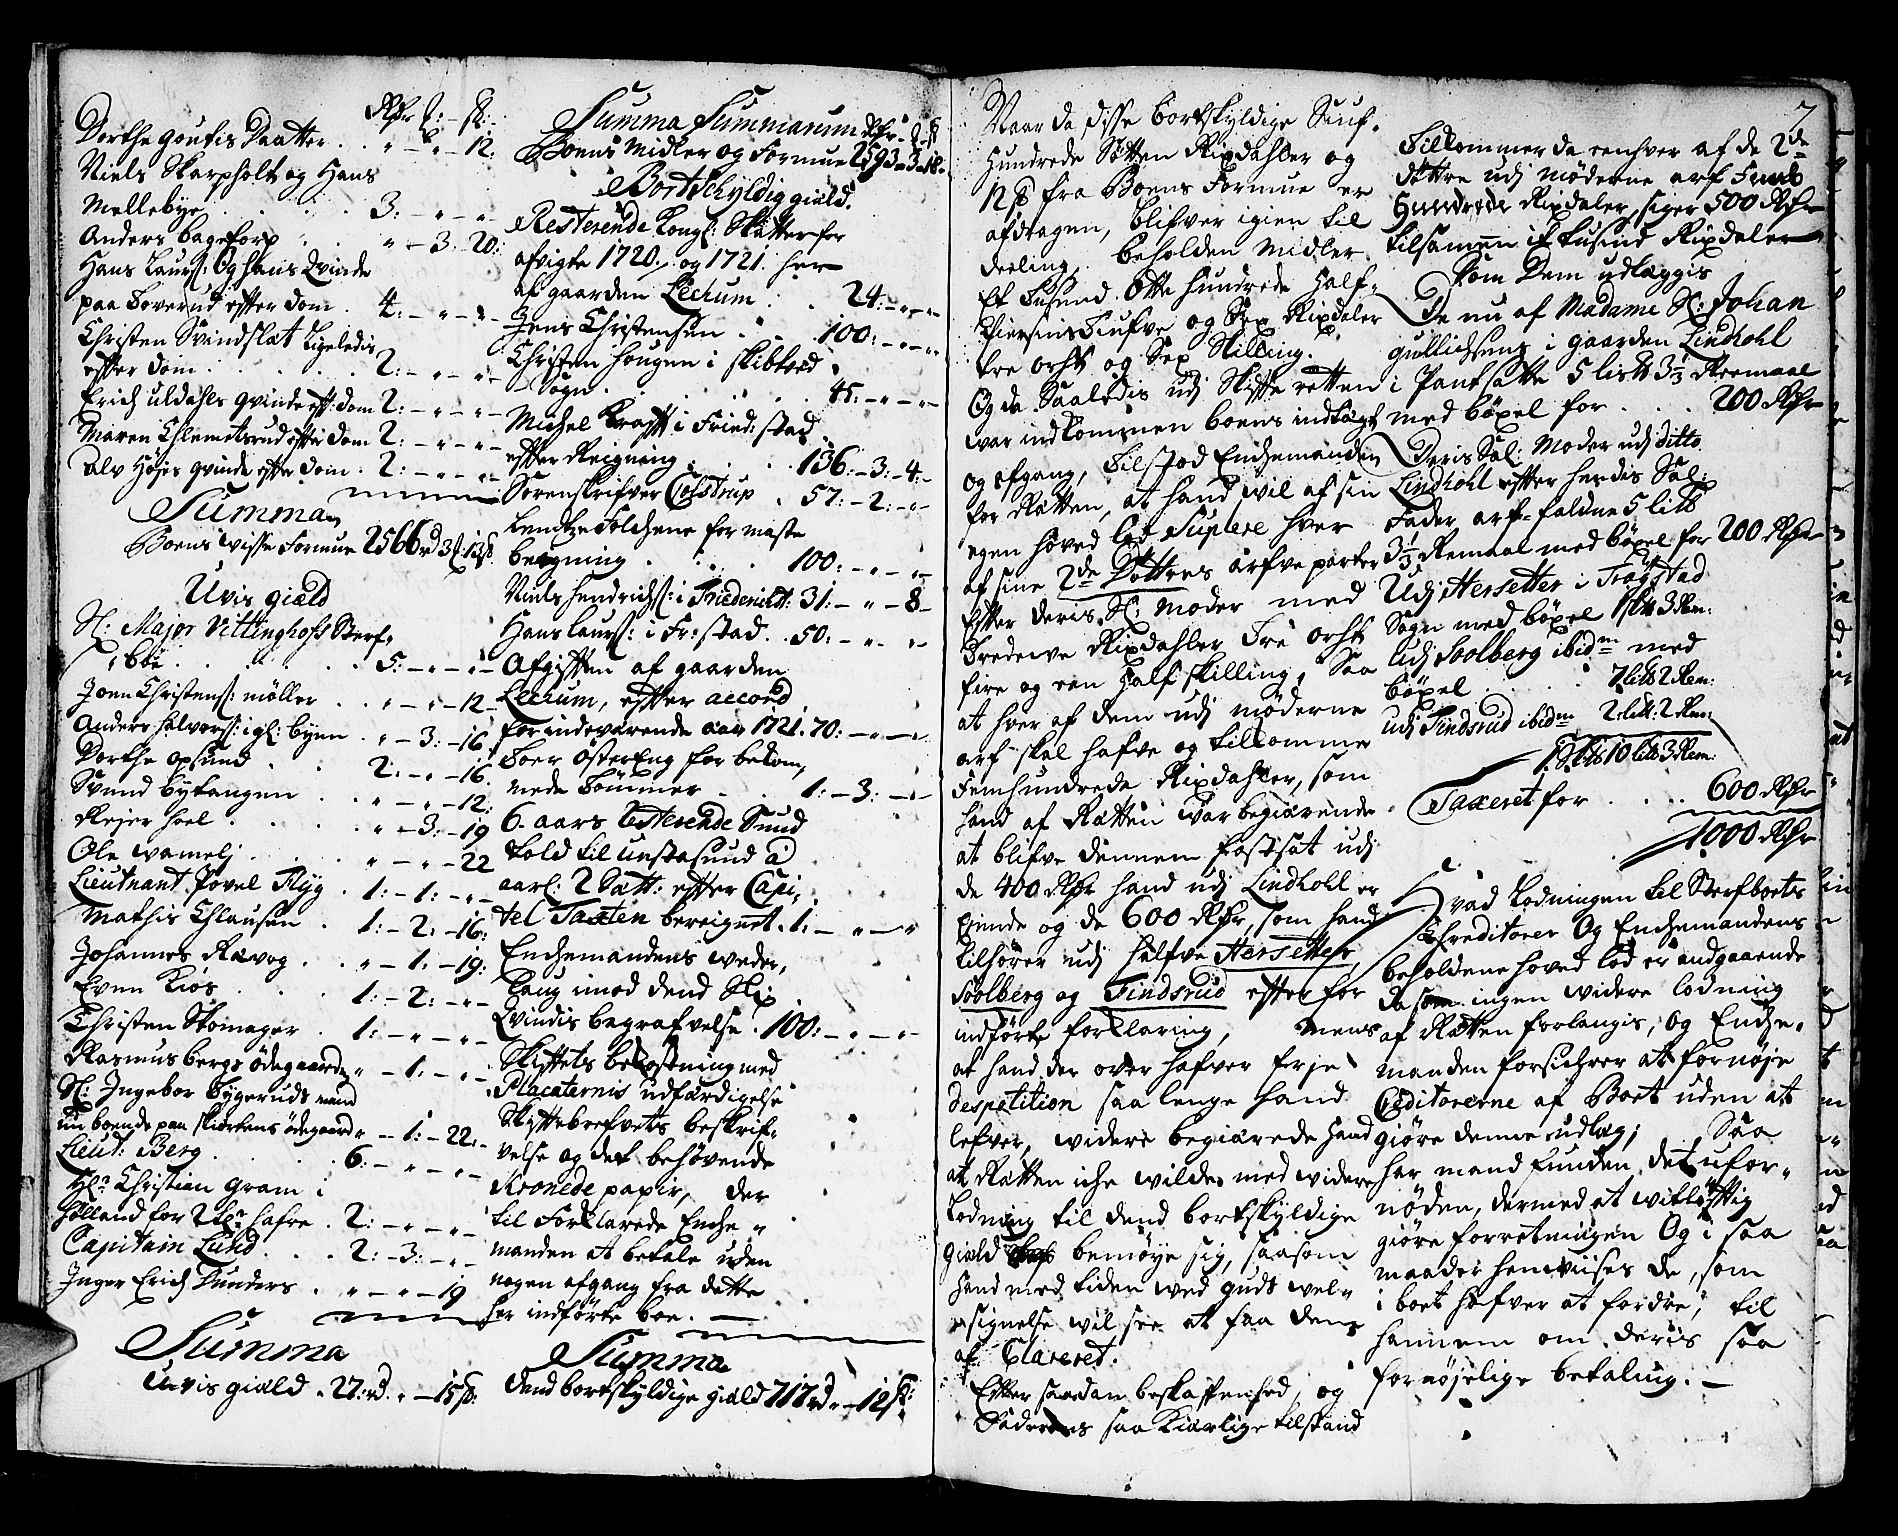 Rdr ƺ: – ß:
Dorthe goutis Daatter . . „ – „ – 12:
Niels Skarpholt og Hans
Mellebye . . . . 3: – „ – „
Anders bagetorp . . „ – 3: 20:
Hans Laurs: Og hans Qvinde
paa Toverud efter dom . 4: – „ – „
Christen Svindslæt Ligeledis
efter dom . . . . 2: – „ – „
Erich uldahls qvinde eft: dom 2: – „ – „
Maren Chlemetsrud efter dom 2: – „ – „
Alv Høyes qvinde efter dom . 2: – „ – „
Summa
Boens wisse Formue 2566 rd 3ƺ: 13ß
Uvis gield
Sl: Major Vittinghofs Sterf„
boe . . . . 5: – „ – „
Joen Christens: møller . . „ – „ – 12
Anders halvors: i gl: byen . „ – 3: – 16
Dorthe opsund . . 2: – „ – 16
Svend byetangen . . „ – „ – 12:
Rejer hoel . . . „ – 3: – 19
Ole wamelj . . . „ – „ – 22
Lieutnant Povel Flyg . 1: – 1: – „
Mathis Chlausen . 1: – 2: – 16:
Johannes Ravog . . „ – 1: – 19:
Even Kiøs . . . 1: – 2: – „
Christen Skomager . 1: – „ – „
Rasmus bergs ødegaard „ – 1: – „
Sl: Ingebor bygeruds mand
nu boende paa skiørkens ødegaard „ – 1: – 22:
Lieut: Berg . . . 6: – „ – „
Hr: Christian Gram i
Holland for 2 hafre . 2: – „ – „
Capitain Lund . . 2: – 3: – „
Inger Erich Lunders . „ – „ – 19
Summa
Uvis gield . 27: rd „ – 15ß:
Summa Summarum Rdr ƺ ß
Boens Midler og Formue 2593 – 3 – 18
Bortschyldig gield.
Resterende Kongl: Skatter for
afvigte 1720. og 1721. her
af gaarden Lechum . . 24: – „ – „
Jens Christensen . . 100: – „ – „
Christen hougen i skibtved
Sogn . . . . 45: – „ – „
Michel Krafft i Fried: stad
efter Reigning . . . 136: – 3: – 4:
Sorenskrifver Colstrup . 57: – 2: – „
Lendtze Tolchene for maste
beregning . . . . 100: – „ – „
Niels hendrichs: i Friederichst: 31: – „ – 8
Hans Laurs: i Fr: stad . . 50: – „ – „
Afgifften af gaarden
Lechum, efter accord
for indeværende aar 1721 . 70: – „ – „
Toer Østereng for bekom„
mede Tømmer . . 1: – 3: – „
6. aars Resterende Sund
told til unstasund à
aarl: 2 Sætt: efter Capi„
tel Taxten bereignet . 1: – „ – „
Enchemandens weder„
laug imod dend Sl:
Qvindis begrafvelse . 100: – „ – „
Skifftets bekostning med
Placaternis udfærdigelse
Skifftebrefvets beskrif„
velse og det behøvende
Kronede papir, der
til Forklarede Enche „
manden at betale uden
nogen afgang fra dette
her indførte boe. –
Summa
Dend bortskyldige gield 717 rd „ – 12ß:
Naar da disse bortskyldige Siuf„
Hundrede Søtten Rixdahler og
12 ß fra Boens Formue er
afdragen, blifver igien til
deeling, beholden Midler
Et Tusend Otte Hundrede Half„
fiersins Tiufve og Sex Rixdaler
tre orht og Sex Skilling.
Og da Saaledis udj Skiffte retten
war indkommen boens indtægt
og afgang, Tilstod Enchemanden
for Rætten, at hand wil af sin
egen hoved lod Suplere hver
af sine 2de Døttres arfve parter
Efter deris Sl: Moder med
Tredewe Rixdahler Tre orht
fire og een Half skilling, Saa
at hver af dem udj møderne
arf skal hafve og tillomme
Femhundrede Rixdahler, som
hand af Rætten war begiærende
at blifve dennem fastsat udj
de 400 Rdr hand udj Lindhohl er
eiende og de 600 Rdr, som hand
tilhører udj halfve Hersetter,
Soolberg og Tindsrud efter for
indførte forklaring, mens
at hand der over hafver frje
despetition saa lenge hand
lefver, widere begiærede hand
at Rætten iche wilde med widere
Lodning til dend bortskyldige
gield bemøye sig, saasom
Hand med tiden wed guds wel„
signelse wil see at faa dend
af Clareret.
Efter saadan beskaffenhed, og
Faderens saa Kiærlige tilstand
7
Tillommer da eenhver af de 2de
døttre udj møderne arf Femb
Hundrede Rixdaler, siger 500 Rdr
tilsamen it tusind Rixdaler
Som Dem udlæggis
De nu af Madame Sl: Johan
gullichsens i gaarden Lindhohl
i Pantsatte 5 lisb 3½ Remaal
med bøxel for . . . 200 Rdr
Deris Sal: Moder udj ditto
Lindhohl efter hendis Sal:
Fader arf-faldne 5 litb
3½ Remaal med bøxel for 200 Rdr
Udj Hersetter i Trøgstad
Sogn med bøxel 1 3 Rem:
udj Soolberg ibidm med
bøxel . . . 7 litb 2 Rem:
udj Tindsrud ibidm 2: litb: 2 Rem:
1 10 litb 3 Rem:
Taxeret for . . . . 600 Rdr
1000 Rdr
Hvad Lodningen til Sterfboets
Chreditorer Og Enchemandens
beholdene hoved lod er andgaaende
da som ingen widere lodning
af Rætten forlangis, og Enche„
manden forsichrer at fornøje
Creditorerne af Boet uden at
giøre denne udlæg; Saa
har mand funden det ufor„
nøden, dermed at witløftig
giøre forretningen Og i saa
maader henwiises de, som
i boet hafver at fordre, til
hannem om deris saa
fornøjelige betaling. –